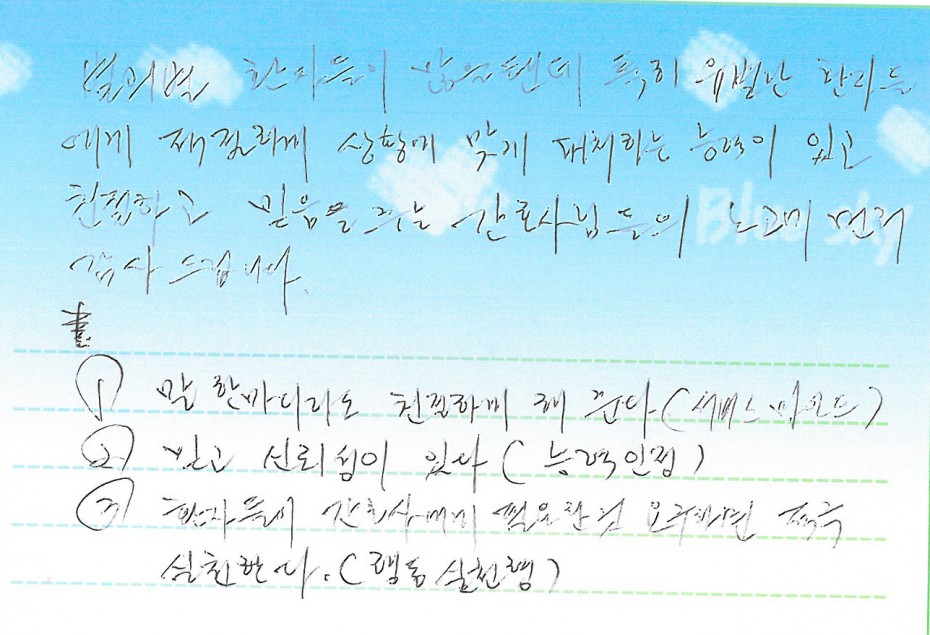 별의별 환자들이 많을텐데 특히 유별난 환자들
에게 재질하게 상황에 맞게 대처하는 능력이 있고
친절하고 믿음을 주는 간호사님들의 노고에 먼저
감사드립니다.
Blue sky
① 말 한마디라도 친절하게 해 준다 (서비스 마인드)
② 밝고 신뢰성이 있다 (능력인정)
③ 환자들이 간호사에게 필요한 것 요구하면 적극
실천한다. (행동실천형)